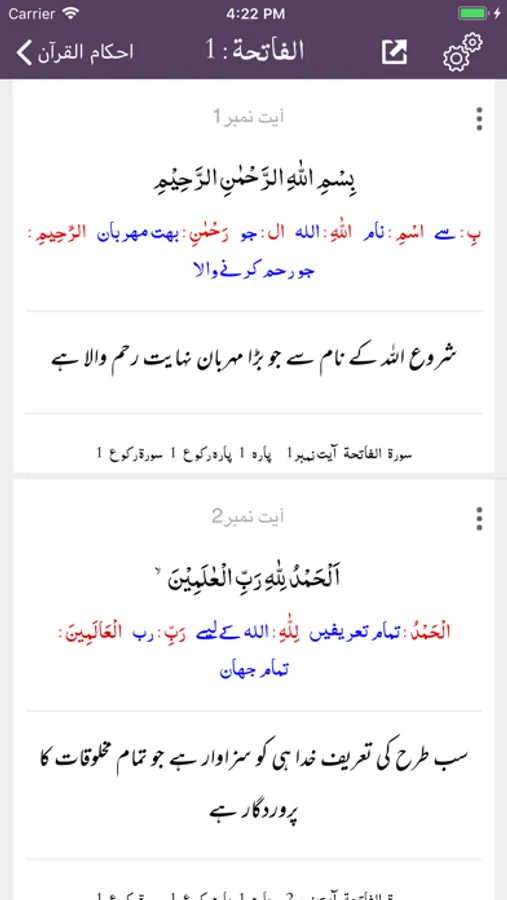 Carrier 4:22 PM
احکام القرآن الفاتحة : 1
آیت نمبر1
بِسْمِ اللّٰهِ الرَّحْمٰنِ الرَّحِیْمِ
بِ: سے اسْمِ: نام اللّٰهِ: الله ال: جو رَحْمٰنِ: بهت مهربان الرَّحِیمِ:
جو رحم کرنے والا
شروع اللہ کے نام سے جو بڑا مہربان نہایت رحم والا ہے
سورۃ الفاتحۃ آیت نمبر1 پارہ 1 پارہ رکوع 1 سورۃ رکوع 1
آیت نمبر2
اَلْحَمْدُ لِلّٰهِ رَبِّ الْعٰلَمِیْنَ ۙ
الْحَمْدُ: تمام تعریفیں لِلّٰهِ: الله کے لیے رَبِّ: رب الْعَالَمِینَ:
تمام جهان
سب طرح کی تعریف خدا ہی کو سزاوار ہے جو تمام مخلوقات کا
پروردگار ہے